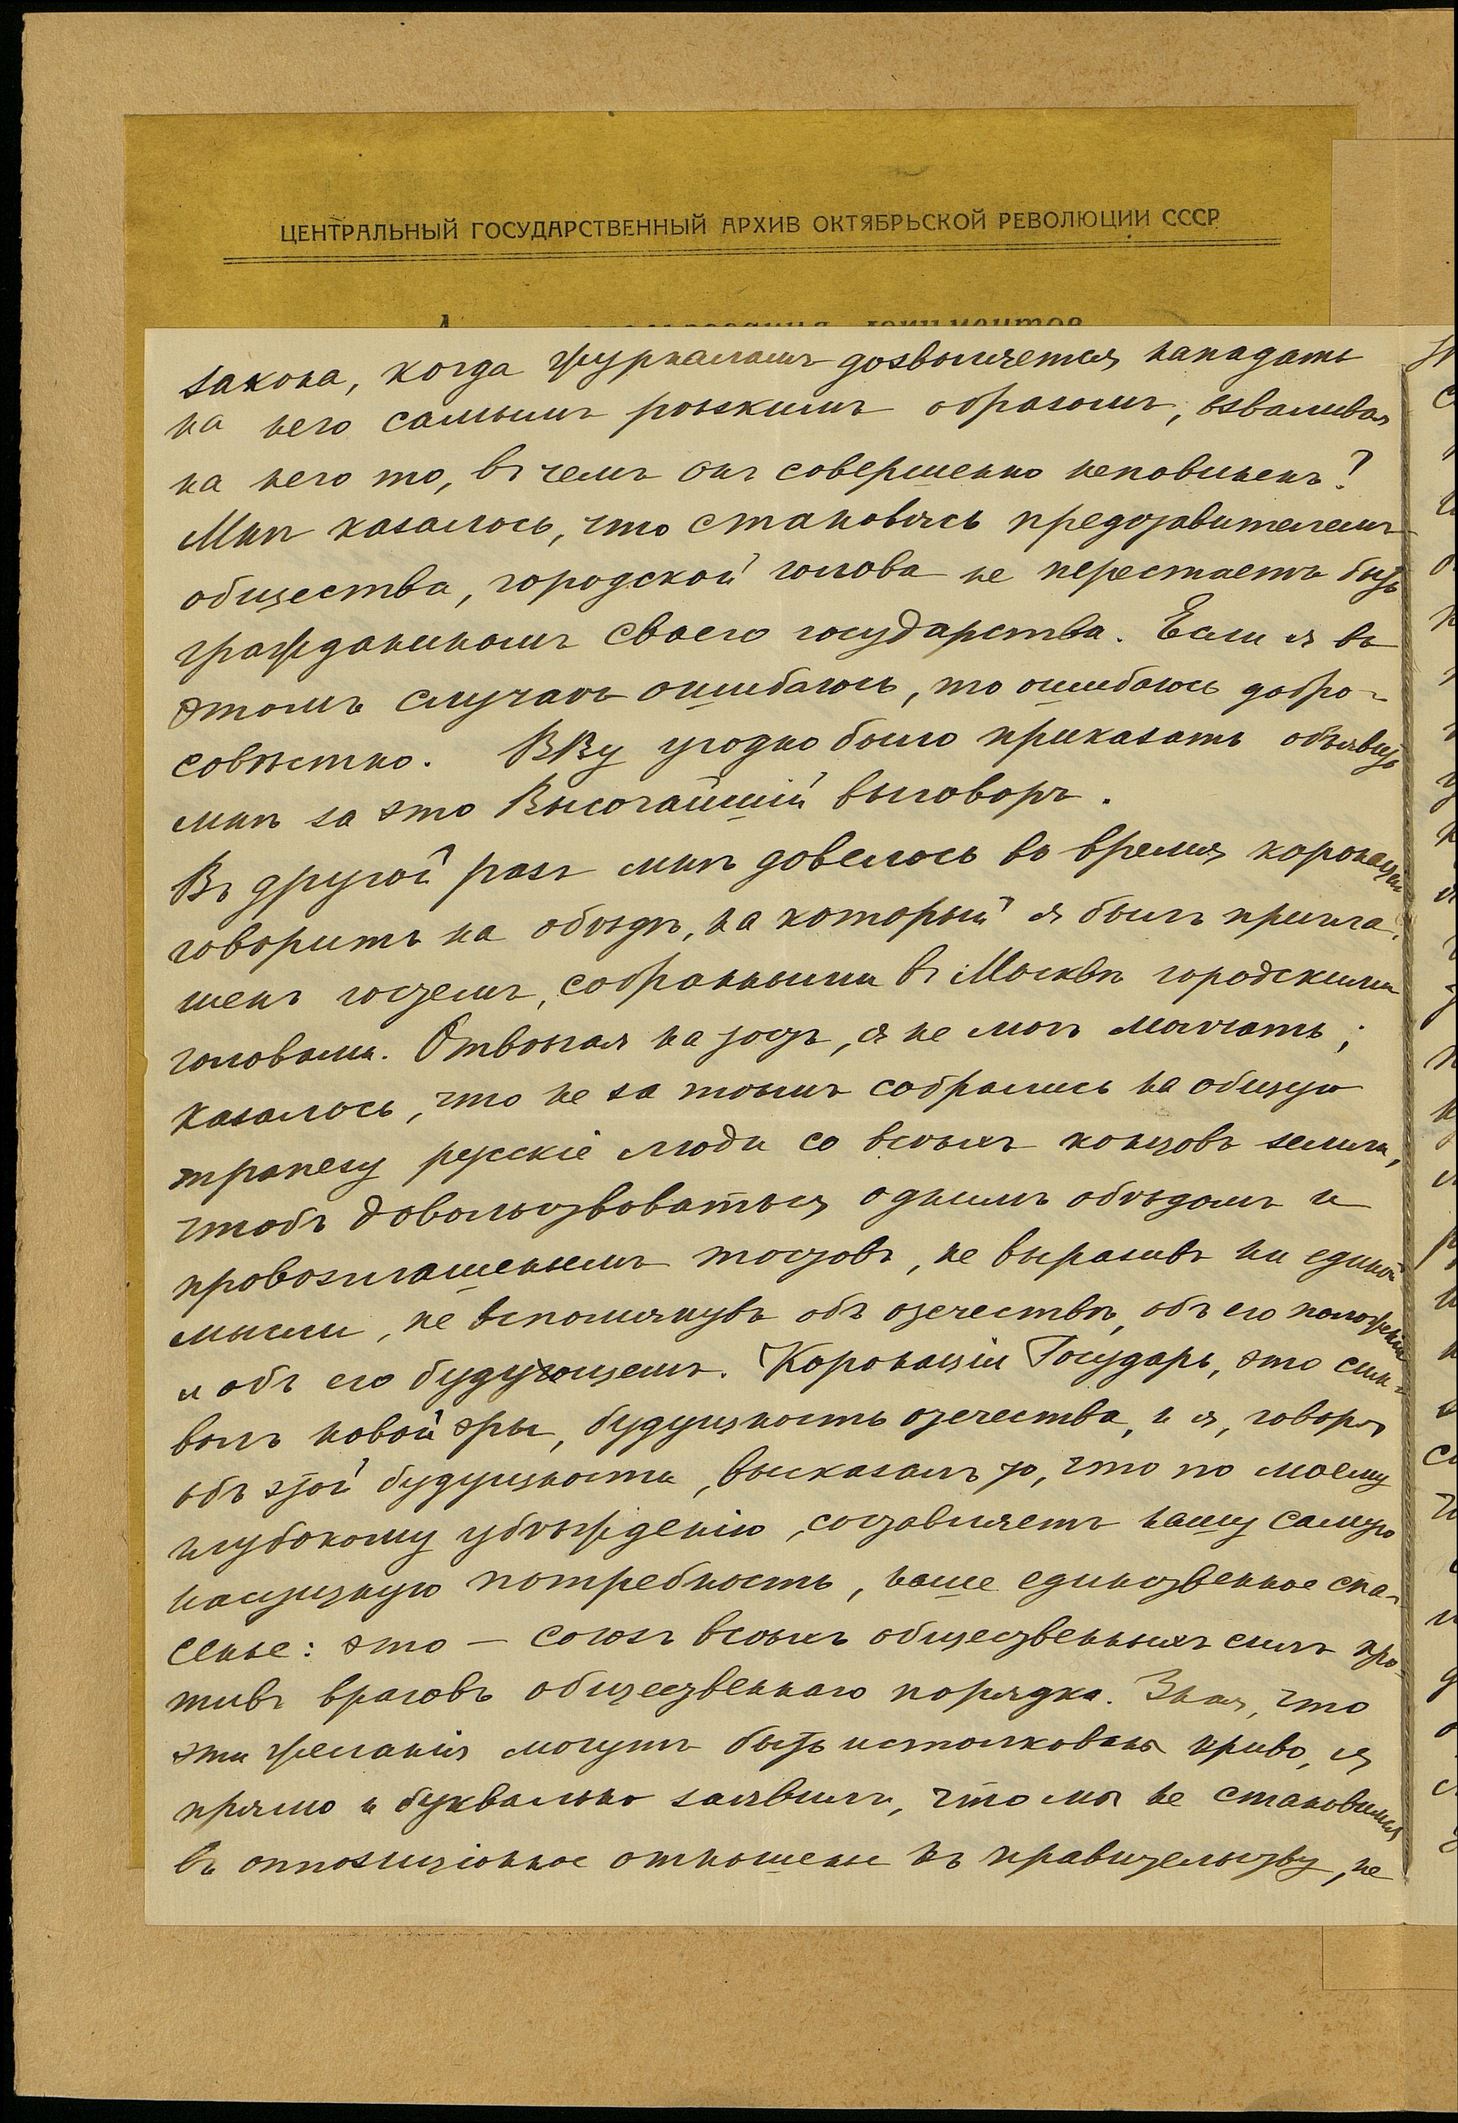 ЦЕНТРАЛЬНЫЙ ГОСУДАРСТВЕННЫЙ АРХИВ ОКТЯБРЬСКОЙ РЕВОЛЮЦИИ СССР
закона, когда журналамъ дозволяется нападать
на него самымъ рѣзкимъ образомъ, взваливая
на него то, въ чемъ онъ совершенно неповиненъ?
Мнѣ казалось, что становясь представителемъ
общества, городской голова не перестаетъ быть
гражданиномъ своего государства. Если я въ
этомъ случаѣ ошибаюсь, то ошибаюсь добро-
совѣстно. ВВу угодно было приказать объявить
мнѣ за это Высочайшій выговоръ.
Въ другой разъ мнѣ довелось во время коронаціи
говорить на обѣдѣ, на который я былъ пригла-
шенъ гостемъ, собранными въ Москвѣ городскими
головами. Отвѣчая на тостъ, я не могъ молчать;
казалось, что не за тѣмъ собрались на общую
трапезу русскіе люди со всѣхъ концовъ земли,
чтобъ довольствоваться однимъ обѣдомъ и
провозглашеньемъ тостовъ, не выразивъ ни единой
мысли, не вспомянувъ объ отечествѣ, объ его положеніи
и объ его будующемъ. Коронаціи Государь, это сим-
волъ новой эры, будущность отечества, и я, говоря
объ этой будущности, высказалъ то, что по моему
глубокому убѣжденію, составляетъ нашу самую
насущную потребность, наше единственное спа-
сенье: это – союзъ всѣхъ общественныхъ силъ про-
тивъ враговъ общественнаго порядка. Зная, что
эти желанія могутъ быть истолкованы криво, я
прямо и буквально заявилъ, что мы не становимся
въ оппозиціонное отношенье къ правительству, не